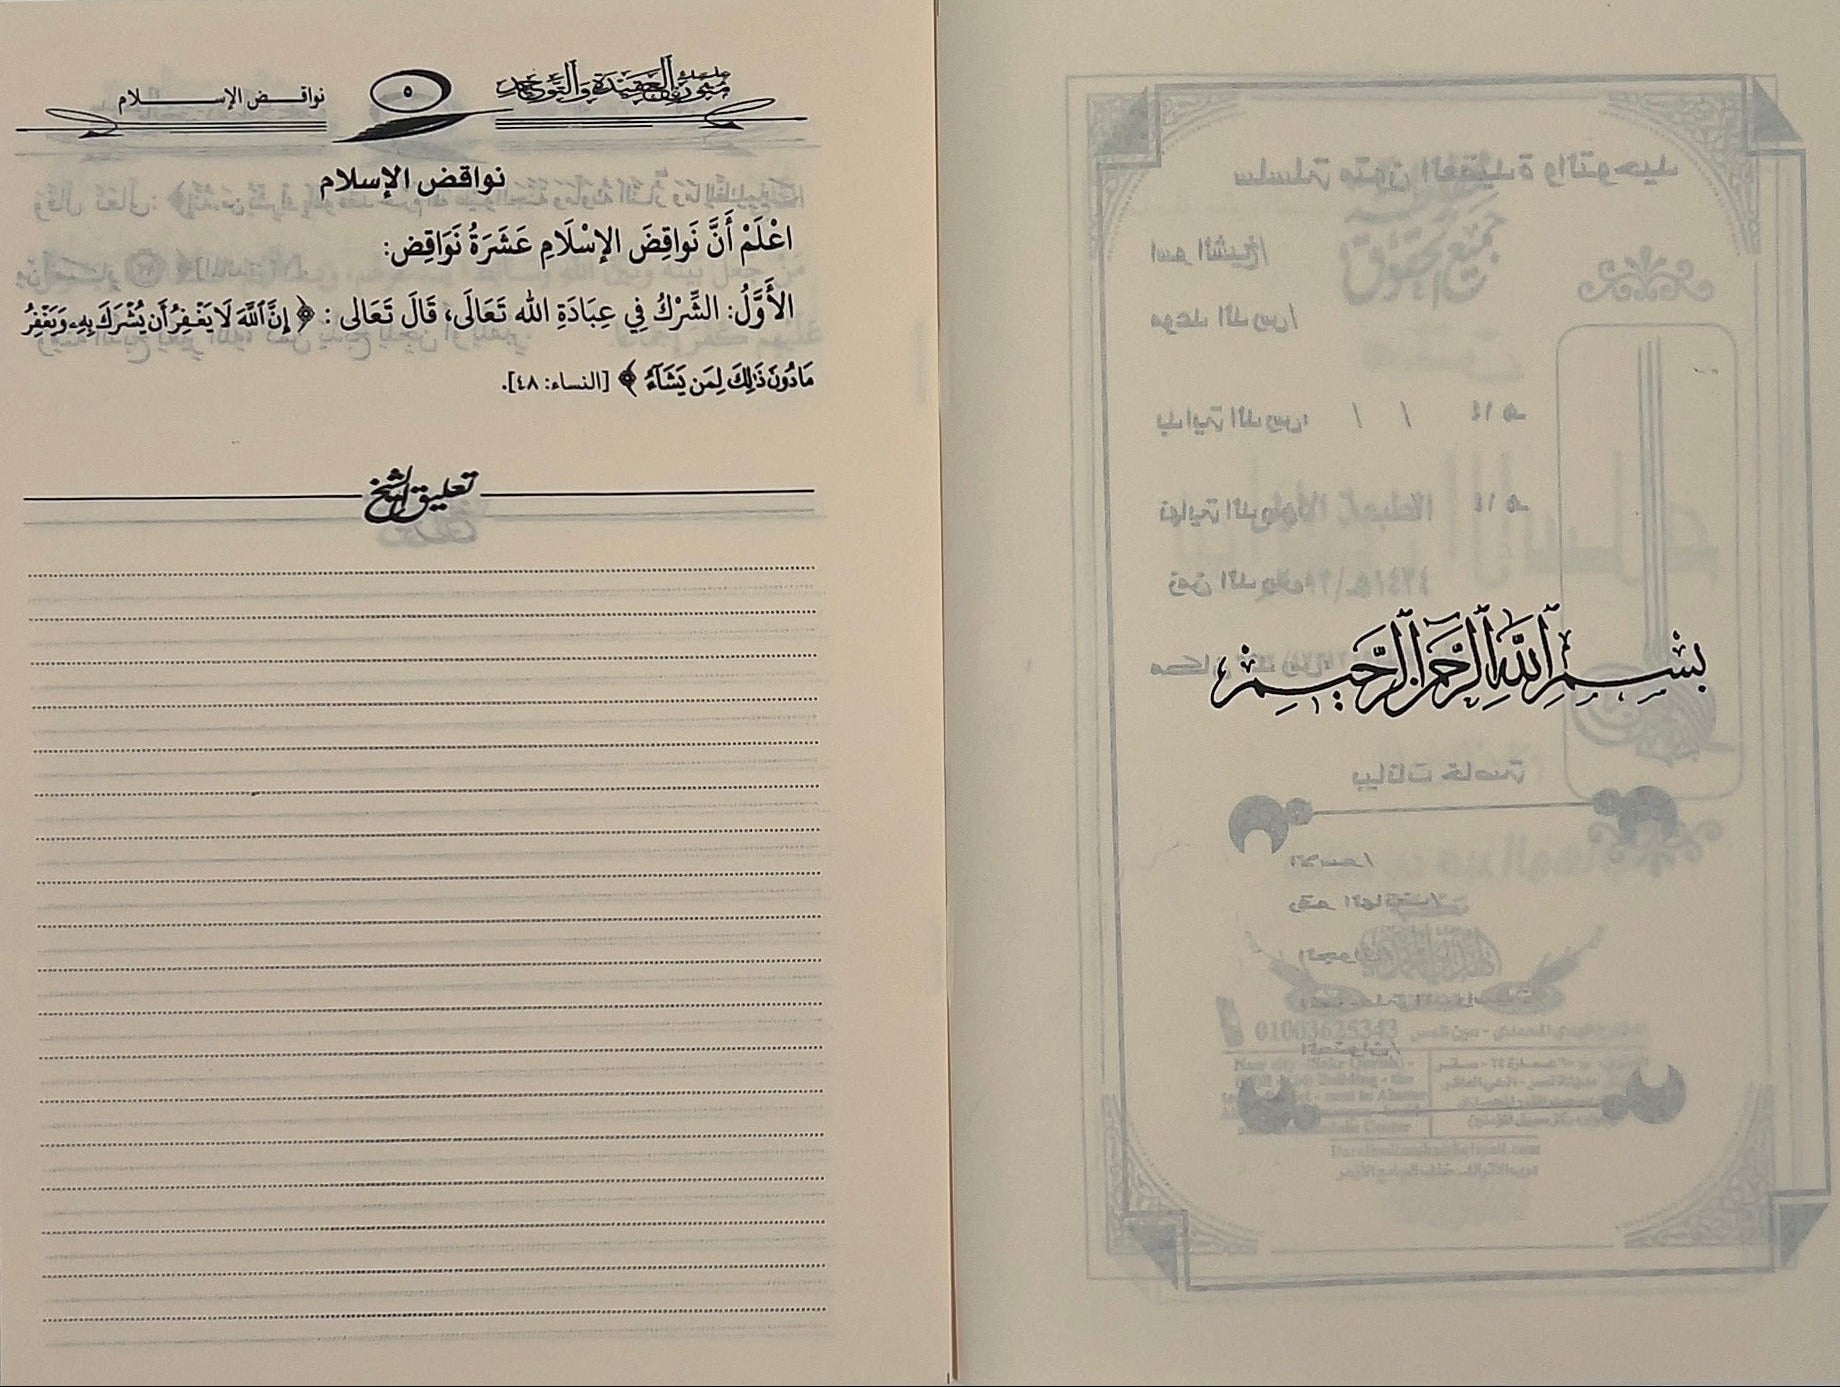 بسم الله الرحمن الرحيم
سلسلة متون العقيدة والتوحيد
٥
نواقض الإسلام
نواقض الإسلام
اعْلَمْ أَنَّ نَواقِضَ الإسْلَامِ عَشَرَةُ نَوَاقِض:
الأَوَّلُ: الشِّرْكُ فِي عِبَادَةِ الله تَعَالَى، قَالَ تَعَالى : ﴿ إِنَّ ٱللَّهَ لَا يَغْفِرُ أَن يُشْرَكَ بِهِۦ وَيَغْفِرُ
مَا دُونَ ذَٰلِكَ لِمَن يَشَآءُ ﴾ [النساء: ٤٨].
تعليق الشيخ